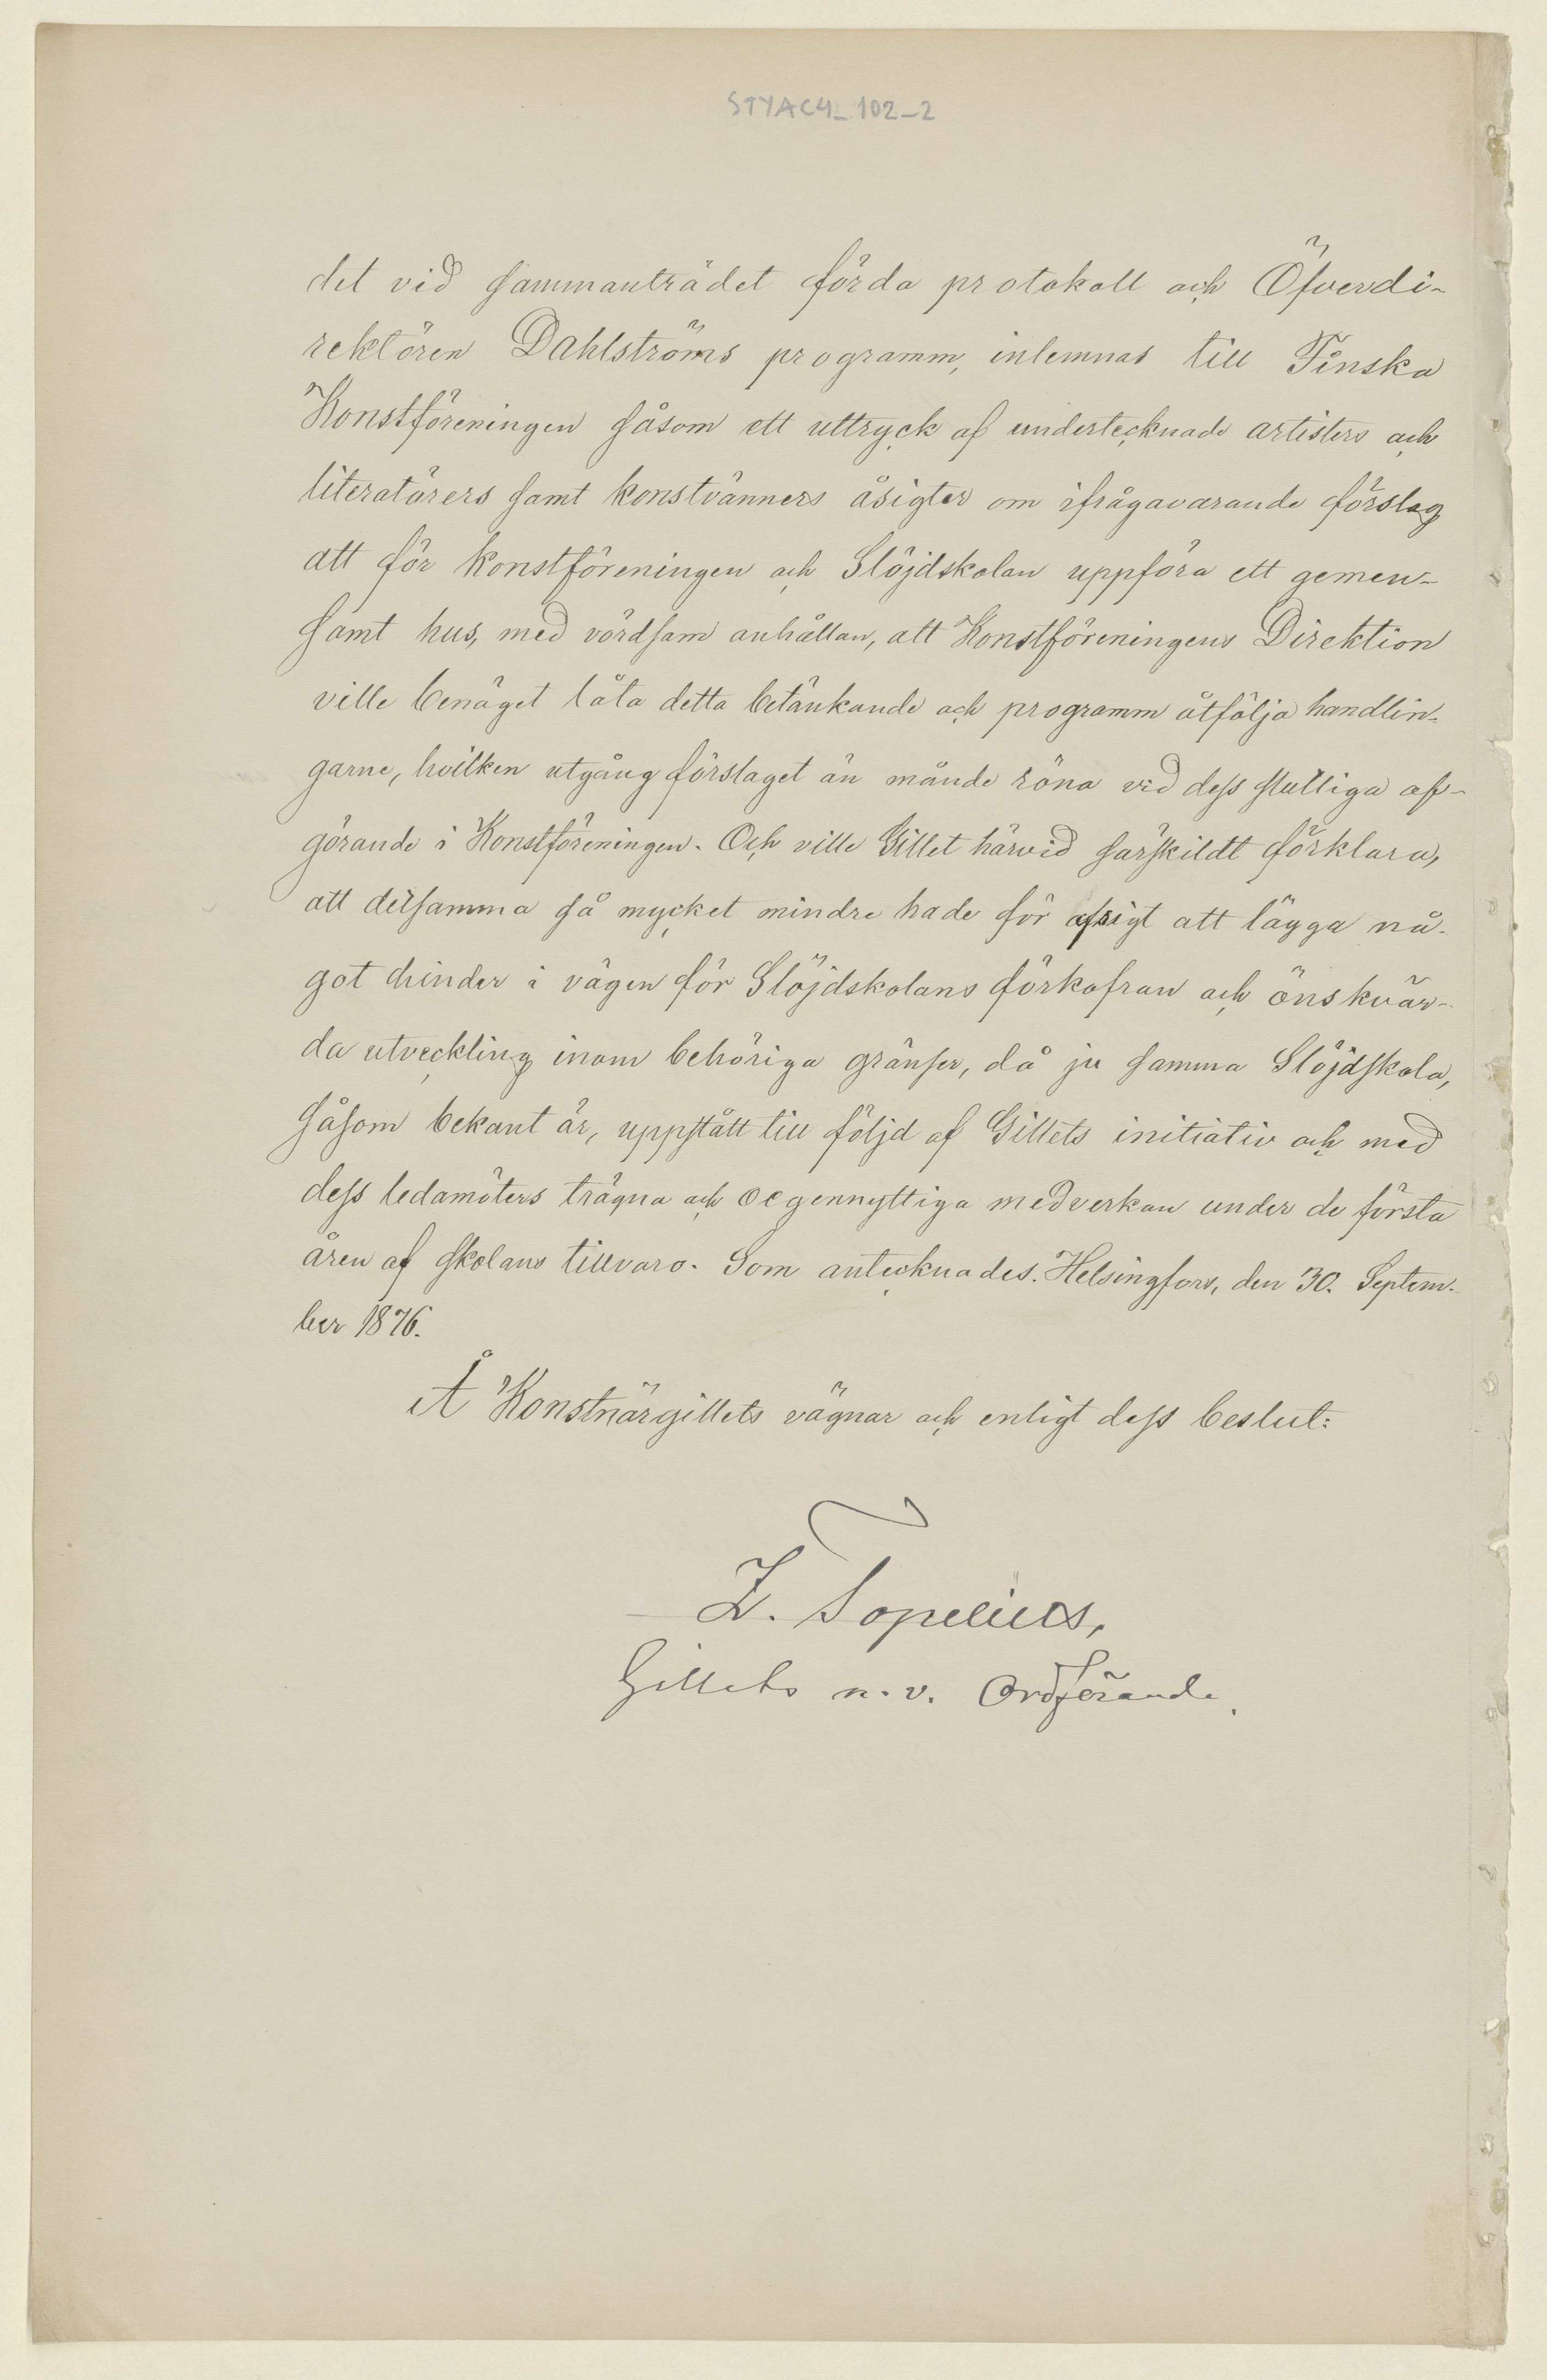 STYAC4_102_2
det vid sammanträdet förda protokoll och Öfverdi-
rektören Dahlströms programm, inlemnas till Finska
Konstföreningen såsom ett uttryck af undertecknade artisters och
literatörers samt konstvänners åsigter om ifrågavarande förslag
att för Konstföreningen och Slöjdskolan uppföra ett gemen-
samt hus, med vördsam anhållan, att Konstföreningens Direktion
ville benäget låta detta betänkande och programm åtfölja handlin-
garne, hvilken utgång förslaget än månde röna vid dess slutliga af-
görande i Konstföreningen. Och ville Gillet härvid särskildt förklara,
att detsamma så mycket mindre hade för afsigt att lägga nå-
got hinder i vägen för Slöjdskolans förkofran och önskvär-
da utveckling inom behöriga gränser, då ju samma Slöjdskola,
såsom bekant är, uppstått till följd af Gillets initiativ och med
dess ledamöters trägna och oegennyttiga medverkan under de första
åren af skolans tillvaro. Som antecknades. Helsingfors, den 30. Septem-
ber 1876.
Å Konstnärgillets vägnar och enligt dess beslut:
Z. Topelius,
Gillets n.v. Ordförande.